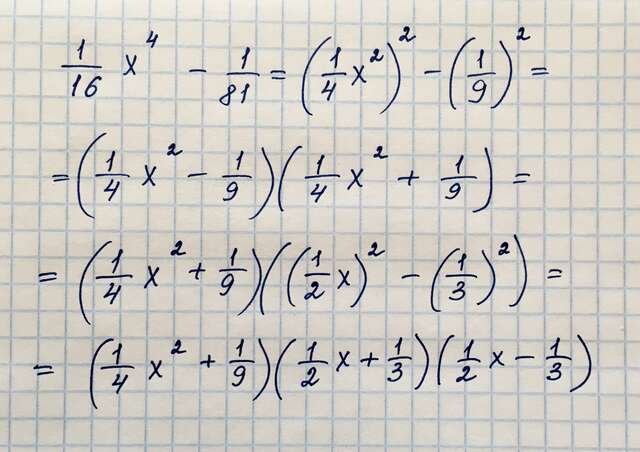 1/16 x⁴ - 1/81 = (1/4 x²)² - (1/9)² =
= (1/4 x² - 1/9)(1/4 x² + 1/9) =
= (1/4 x² + 1/9)((1/2 x)² - (1/3)²) =
= (1/4 x² + 1/9)(1/2 x + 1/3)(1/2 x - 1/3)